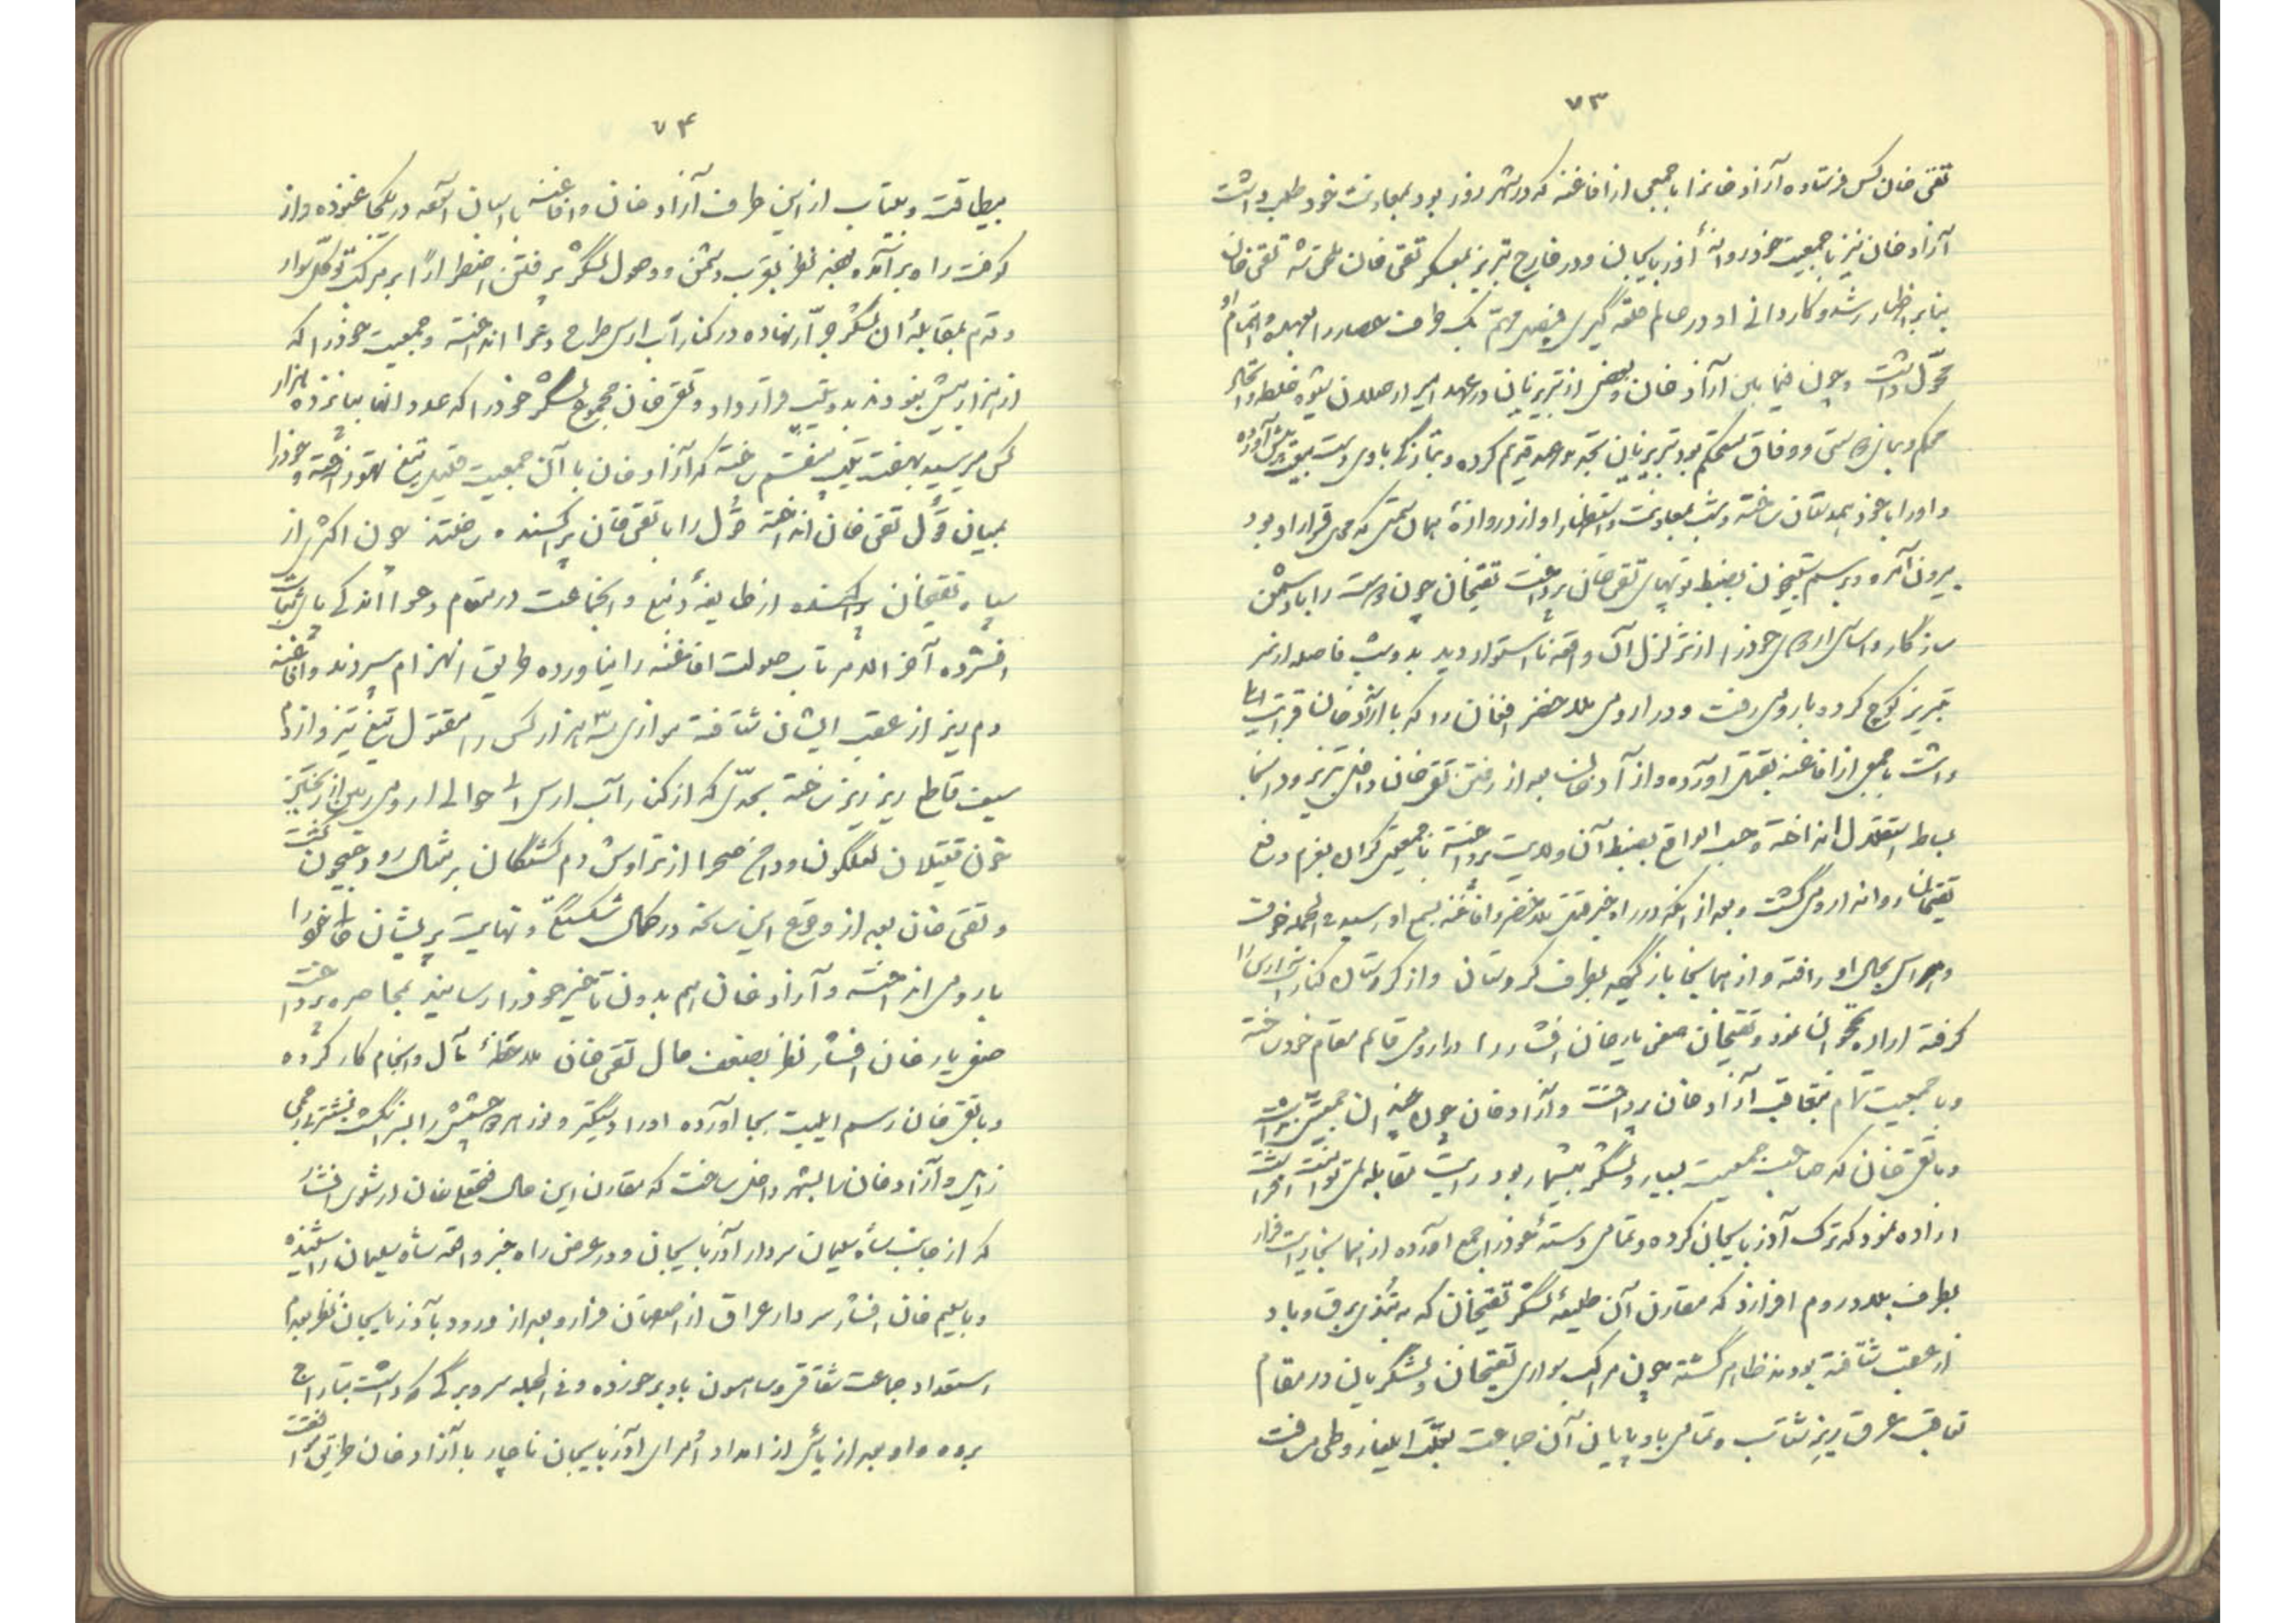 ۷۳
تقی خان کس فرستاده آزاد خانرا با جمعی از افاغنه که در شهر زور بود بمعاونت خود طلب داشت
آزاد خان نیز با جمعیت خود روانهٔ آذربایجان و در خارج تبریز بمعسکر تقی خان ملحق شد تقی خان
بنابر اظهار رشد و کاردانی او در صالم قلعه گیری فیصل مهم یک طرف حصار را بعهدهٔ اهتمام او
محول داشت و چون فیما بین آزاد خان و بعضی از تبریزیان در عهد امیر ارسلان شیوه خلطه و اتحاد
محکم و میان دوستی و وفاق مستحکم بود تبریزیان تجدید عهد قدیم کرده
و او را با خود همدستان ساخته و شب بمعاونت و استظهار او از دروازهٔ همان سمتی که محل قرار او بود
بیرون آمده و برسم شبیخون بضبط توپهای تقی خان پرداخت تقیخان چون دوست را با دشمن
سازگار و اساس ارکان خود را از تزلزل آن واقعه نااستوار دید بدون فاصله از سر
تبریز کوچ کرده باروم رفت و در ارومی بلد خضر افغان را که با آزاد خان قرابت
داشت با جمعی از افاغنه بقتل آورده و آزاد خان بعد از رفتن تقی خان داخل تبریز و در آنجا
بساط استقلال انداخته و حسب الواقع بضبط آن ولایت پرداخته با جمعیتی گران بعزم دفع
تقیخان روانه ارومی گشت و بعد از آنکه در راه خبر قتل بلد خضر و افاغنه بسمع او رسید فی الجمله خوف
و هراس بحال او راه یافته و از همانجا باز گنجه بطرف کردستان و از کردستان کنار ارس را
گرفته اراده نخجوان نمود و تقیخان صفی یار خان افشار را در ارومی قایم مقام خود ساخته
و با جمعیت تمام بتعاقب آزاد خان پرداخت و آزاد خان چون خبر آن جمعیت
و با تقی خان که صاحب جمعیت بسیار و لشکر بیشمار بود رایت مقابله
اراده نمود که ترک آذربایجان کرده و تمامی دستهٔ خود را جمع آورده از همانجا رایت فرار
بطرف بلاد روم افرازد که مقارن آن طلیعهٔ لشکر تقیخان که به تندی برق و باد
از عقب شتافته بودند ظاهر گشته چون مراکب سواری تقیخان و لشکریان در مقام
تعاقب عرق ریز شتاب و تمامی بادپایان آن جماعت بعلت ایلغار و طی مسافت

۷۴
بیطاقت و بیتاب از این طرف آزاد خان و افاغنه با اسبان آسوده در یکجا غنوده و از
کوفت راه برآمده بودند نظر بقرب دشمن و وصول لشکر پرفتن اضطراراً بر مرکب توکل سوار
و قدم بمقابلهٔ آن لشکر جرّار نهاده در کنار آب ارس طرح دعوا انداخته و جمعیت خود را که
از هزار بیش نبودند بدو تیپ قرار داد و تقی خان مجموع لشکر خود را که عدد آنها بپانزده هزار
کس میرسید بهفت تیپ منقسم ساخته که آزاد خان با آن جمعیت قلیل تیغ تهور آخته و خود را
بمیان قول تقی خان انداخته قول را با تقی خان پراکنده ساختند چون اکثری از
سپاه تقیخان پراکنده از طایفهٔ دنبلی و آنجماعت در مقام دعوا اندکی پای ثبات
افشرده آخر الامر تاب صولت افاغنه را نیاورده طریق انهزام سپردند و افاغنه
دم ریز از عقب ایشان شتافته موازی سه هزار کس را مقتول تیغ تیز و از دم
سیف قاطع ریز ریز ساخته بحدّی که از کنار آب ارس الی حوالی ارومی زمین از ریختن
خون قتیلان لعلگون و دامن صحرا از تراوش دم کشتگان بر مثال رود جیحون گشت
و تقی خان بعد از وقوع این سانحه در کمال شکستگی و نهایت پریشان حالی خود را
بارومی انداخته و آزاد خان هم بدون تاخیر خود را رسانید بمحاصره پرداخت
صفی یار خان افشار نظر بضعف حال تقی خان ملاحظهٔ مآل و انجام کار کرده
و با تقی خان رسم ایلیت بجا آورده او را دستگیر و نور هر دو چشمش را بسر انگشت نیشتر بی رحمی
زایل و آزاد خان را بشهر داخل ساخت که مقارن این حال فتحعلی خان ارشلوی افشار
که از جانب شاه سلیمان سردار آذربایجان و در عرض راه خبر واقعه شاه سلیمان را شنیده
و با سلیم خان افشار سردار عراق از اصفهان فرار و بعد از ورود بآذربایجان نظر بعدم
استعداد جماعت شقاقی و شاهسون باو برخورده و فی الجمله سر و برگی که داشت بتاراج
برده و او بعد از یأس از امداد اُمرای آذربایجان ناچار با آزاد خان طریق موافقت